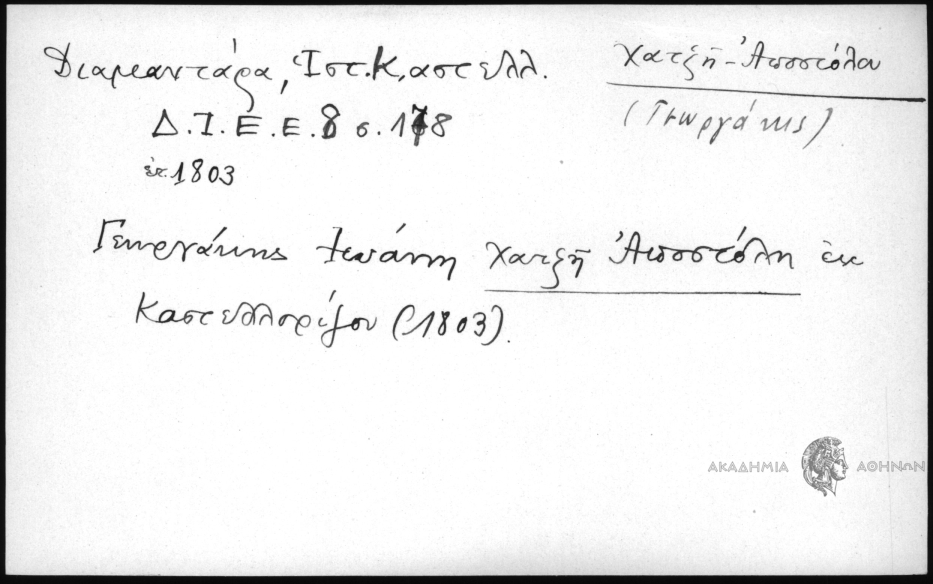 Διαμαντάρα, Ἱστ. Καστελλ.
Χατζῆ-Ἀποστόλου
Δ.Ι.Ε.Ε. 8 σ. 178
(Γεωργάκης)
ἐτ. 1803
Γεωργάκης Ἰωάννη Χατζῆ Ἀποστόλη ἐκ
Καστελλορίζου (1803).
ΑΚΑΔΗΜΙΑ ΑΘΗΝΩΝ